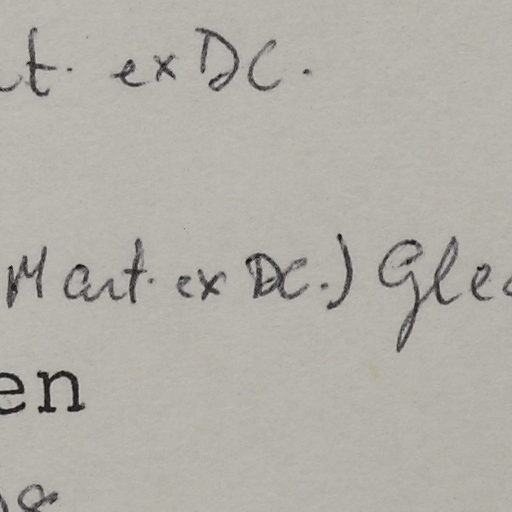 t. ex DC.
Mart. ex DC.) Glea
en
8